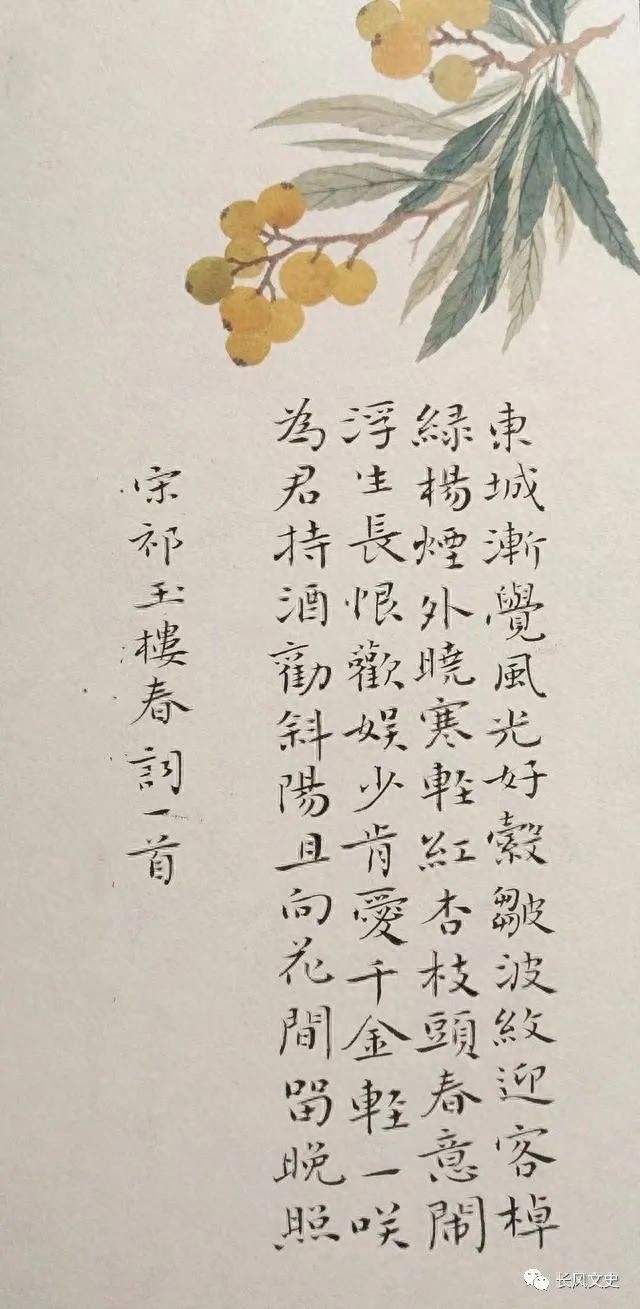 東城漸覺風光好縠皺波紋迎客棹
緑楊煙外曉寒輕紅杏枝頭春意鬧
浮生長恨歡娱少肯愛千金輕一咲
為君持酒勸斜陽且向花間留晚照
宋祁玉樓春詞一首
长风文史